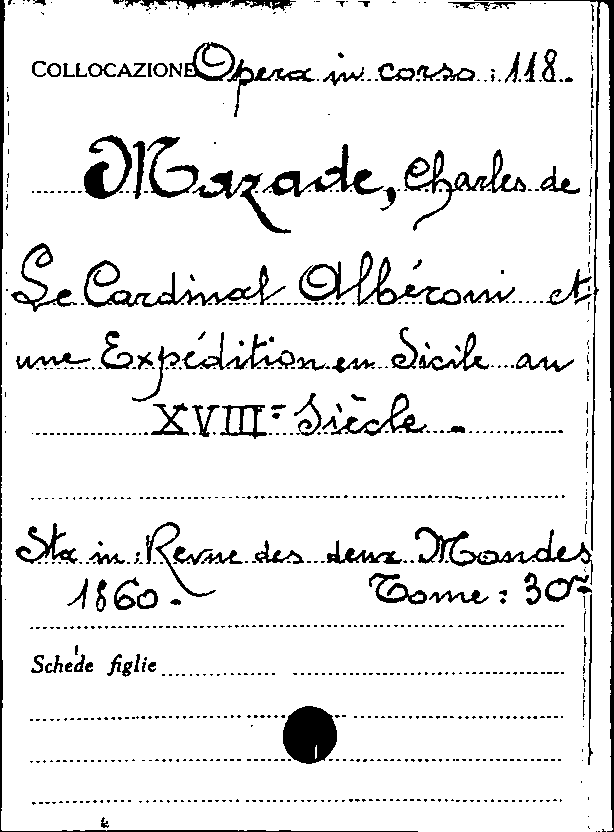 COLLOCAZIONE Opera in corso : 118.
Mazade, Charles de
Le Cardinal Albéroni et
une Expédition en Sicile au
XVIII= Siècle -
Sta in: Revue des deux Mondes
1860. - Tome: 30=
Schede figlie